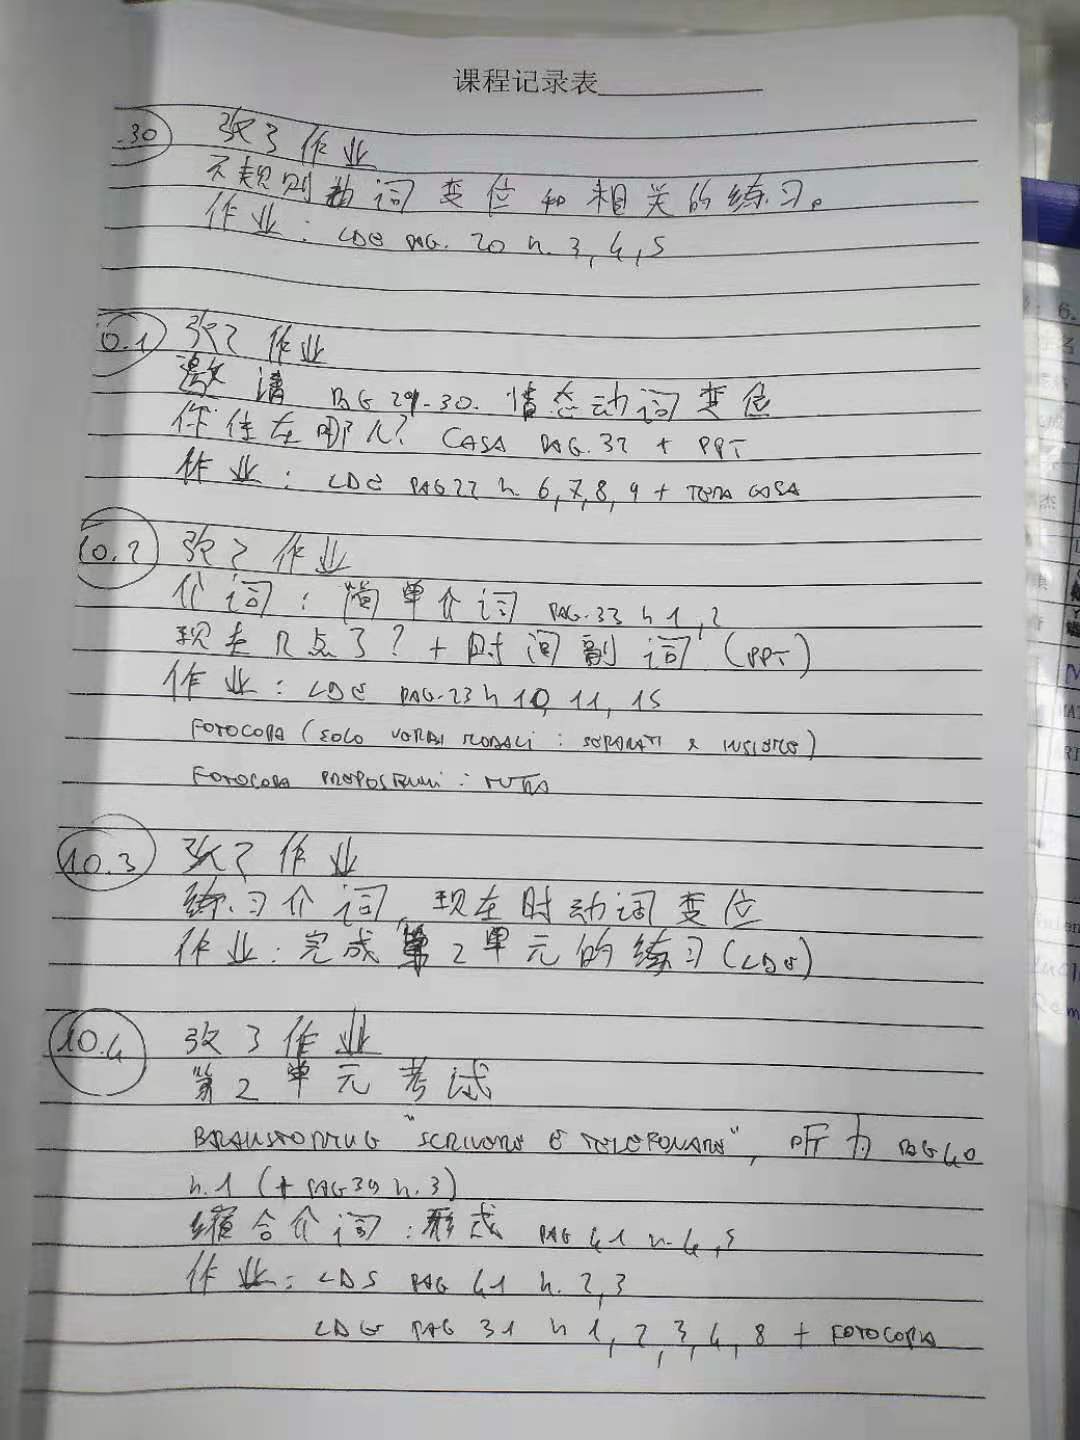 课程记录表
.30 改了作业
不规则动词变位和相关的练习。
作业: LDE PAG. 20 n. 3, 4, 5
0.1 改了作业
邀请 PAG 29-30. 情态动词变位
你住在哪儿? CASA PAG. 32 + PPT
作业: LDE PAG 22 n. 6, 7, 8, 9 + COSA
10.2 改了作业
介词: 简单介词 PAG. 33 n 1, 2
现在几点了? + 时间副词 (PPT)
作业: LDE PAG. 23 n 10, 11, 15
FOTOCOPIA (SOLO VERBI MODALI: SEPARATI E INSIEME)
FOTOCOPIA PREPOSIZIONI: TUTTA
10.3 改了作业
练习介词, 现在时动词变位
作业: 完成第2单元的练习 (LDE)
10.4 改了作业
第2单元考试
BRAINSTORMING "SCRIVERE E TELEFONARE", 听力 PAG 40
n. 1 (+ PAG 39 n. 3)
缩合介词: 形式 PAG 41 n. 4, 5
作业: LDS PAG 41 n. 2, 3
LDE PAG 31 n 1, 2, 3, 4, 8 + FOTOCOPIA